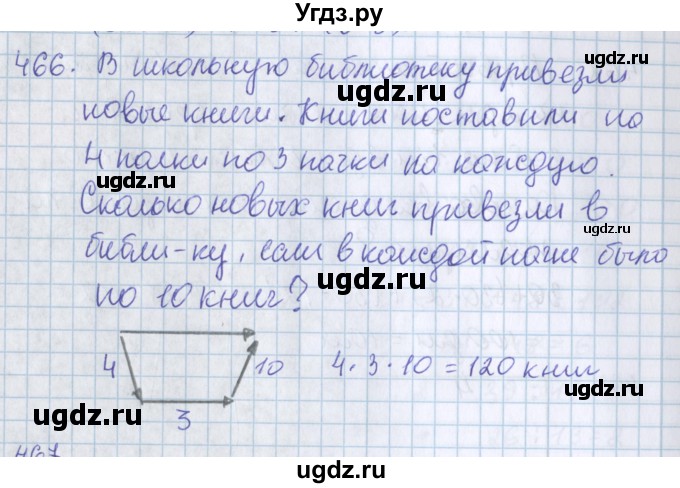 Угдз.ру
466. В школьную библиотеку привезли
ugdz.ru
новые книги. Книги поставили на
ugdz.ru
4 полки по 3 пачки на каждую.
ugdz.ru
Сколько новых книг привезли в
ugdz.ru
библи-ку, если в каждой пачке было
ugdz.ru
по 10 книг?
ugdz.ru
4 10 4 · 3 · 10 = 120 книг
ugdz.ru
ugdz.ru
3
467
ugdz.ru